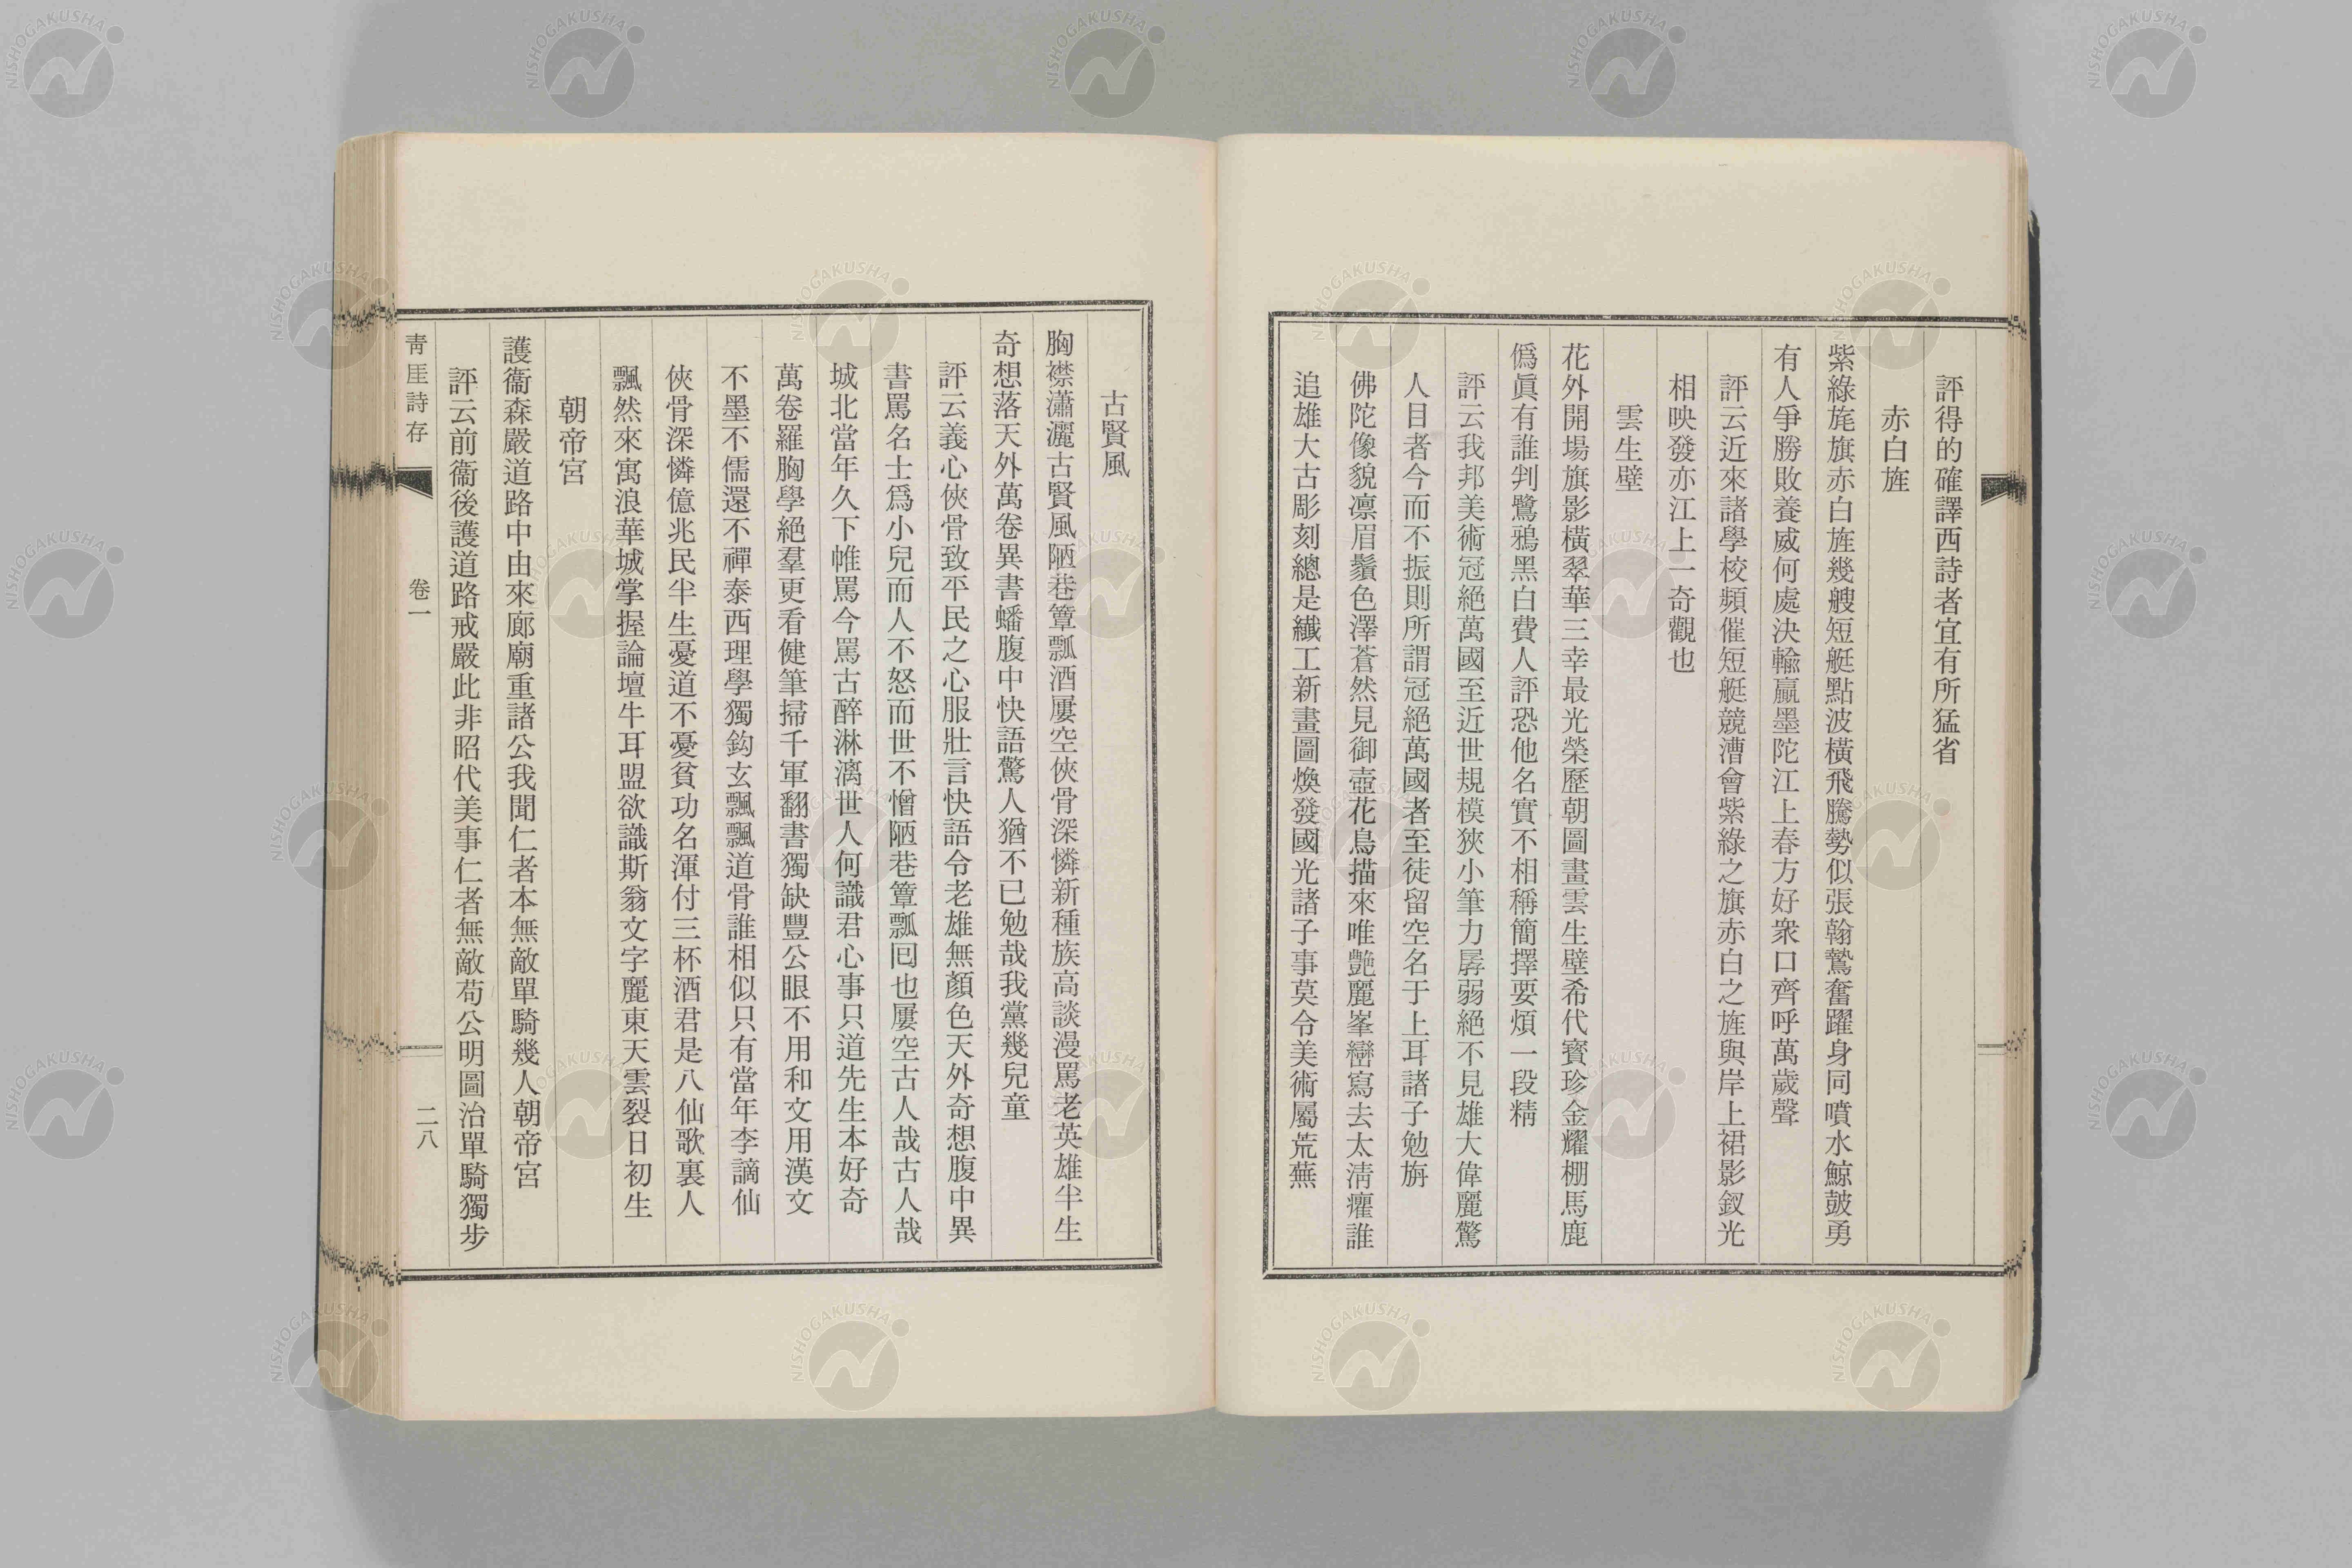 評得的確譯西詩者宜有所猛省
赤白旌
紫綠旄旗赤白旌幾艘短艇點波橫飛騰勢似張翰鷙奮躍身同噴水鯨皷勇
有人爭勝敗養威何處決輸贏墨陀江上春方好衆口齊呼萬歲聲
評云近來諸學校頻催短艇競漕會紫綠之旗赤白之旌與岸上裙影釵光
相映發亦江上一奇觀也
雲生壁
花外開場旗影橫翠華三幸最光榮歷朝圖畫雲生壁希代寳珍金耀棚馬鹿
僞眞有誰判鷺鴉黑白費人評恐他名實不相稱簡擇要煩一段精
評云我邦美術冠絕萬國至近世規模狹小筆力孱弱絕不見雄大偉麗驚
人目者今而不振則所謂冠絕萬國者至徒留空名于上耳諸子勉旃
佛陀像貌凛眉鬚色澤蒼然見御壺花鳥描來唯艶麗峯巒寫去太淸癯誰
追雄大古彫刻總是纖工新畫圖煥發國光諸子事莫令美術屬荒蕪
古賢風
胸襟瀟灑古賢風陋巷簞瓢酒屢空俠骨深憐新種族高談漫罵老英雄半生
奇想落天外萬卷異書蟠腹中快語驚人猶不已勉哉我黨幾兒童
評云義心俠骨致平民之心服壯言快語令老雄無顏色天外奇想腹中異
書罵名士爲小兒而人不怒而世不憎陋巷簞瓢囘也屢空古人哉古人哉
城北當年久下帷罵今罵古醉淋漓世人何識君心事只道先生本好奇
萬卷羅胸學絕羣更看健筆掃千軍翻書獨缺豐公眼不用和文用漢文
不墨不儒還不禪泰西理學獨鈎玄飄飄道骨誰相似只有當年李謫仙
俠骨深憐億兆民半生憂道不憂貧功名渾付三杯酒君是八仙歌裏人
飄然來寓浪華城掌握論壇牛耳盟欲識斯翁文字麗東天雲裂日初生
朝帝宮
護衞森嚴道路中由來廊廟重諸公我聞仁者本無敵單騎幾人朝帝宮
評云前衞後護道路戒嚴此非昭代美事仁者無敵苟公明圖治單騎獨步
靑厓詩存
卷一
二八
NISHOGAKUSHA